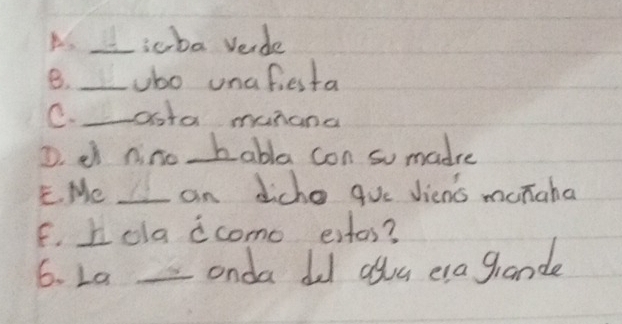 A. __ icba verde
B. __ ubo una fiesta
C. __ asta mañana
D. el nino habla con su madre
E. Me __ an dicho que viens
F. hola ¿como estas?
6. La __ onda del agua era grande